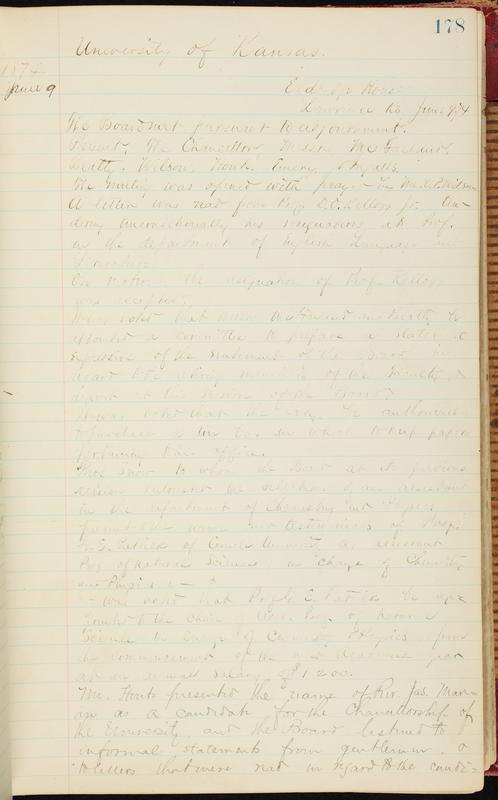 178
University of Kansas.
1874
June 9
Eldridge House
Lawrence Ks June 9, 74
The Board met pursuant to adjournment.
Present, The Chancellor, Messrs
Wilson, Fonts, Emery,
The meeting was opened with prayer by
A letter was read from Prof. D.O. Kellogg Jr. ten-
dering unconditionally his resignation as Prof.
in the department of English Language and
Literature.
On motion, the resignation of Prof. Kellogg
was accepted.
It was voted that Messrs be
appointed a committee to prepare a statement
expressive of the sentiment of the Board in
regard to the retiring members of the Faculty, &
report at this session of the Board.
It was voted that the Secy. be authorized
to purchase a tin box in which to keep papers
pertaining to his office.
Prof. Snow to whom the Board at its previous
session entrusted the selection of an assistant
in the department of Chemistry and Physics
presented the name and testimonials of Prof.
G.E. Patrick of Cornell University as assistant
Prof. of Natural Science, in charge of Chemistry
and Physics.
It was voted that Prof. G. E. Patrick be ap-
pointed to the chair of Asst. Prof. of Natural
Science in charge of Chemistry & Physics from
the commencement of the next academic year
at an annual salary of $1200.
Mr. Fonts presented the name of Rev. Jas. Mar-
vin as a candidate for the Chancellorship of
the University, and the Board listened to
informal statements from gentlemen, &
to letters that were read in regard to the candi-